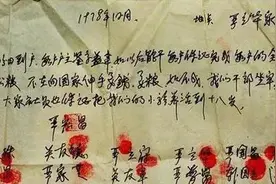 1978年12月 地点 严立华家
田到户 每户户主签字盖章 如以后能干 每户保证完成每户的全
公粮 不在向国家伸手要钱要粮 如不成 我们干部坐牢
大家社员也保证把我们的小孩养活到十八岁
严宏昌
关友德 严立富 严立华
严家芝 关友章